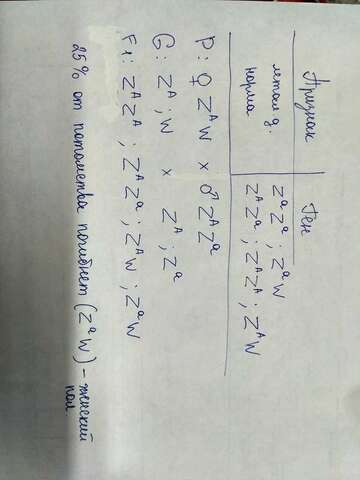 Признак Ген
летал д. ZᵃZᵃ ; ZᵃW
норма ZᴬZᵃ ; ZᴬZᴬ ; ZᴬW
P: ♀ ZᴬW × ♂ ZᴬZᵃ
G: Zᴬ ; W × Zᴬ ; Zᵃ
F₁: ZᴬZᴬ ; ZᴬZᵃ ; ZᴬW ; ZᵃW
25% от потомства погибнет (ZᵃW) – женский
пол